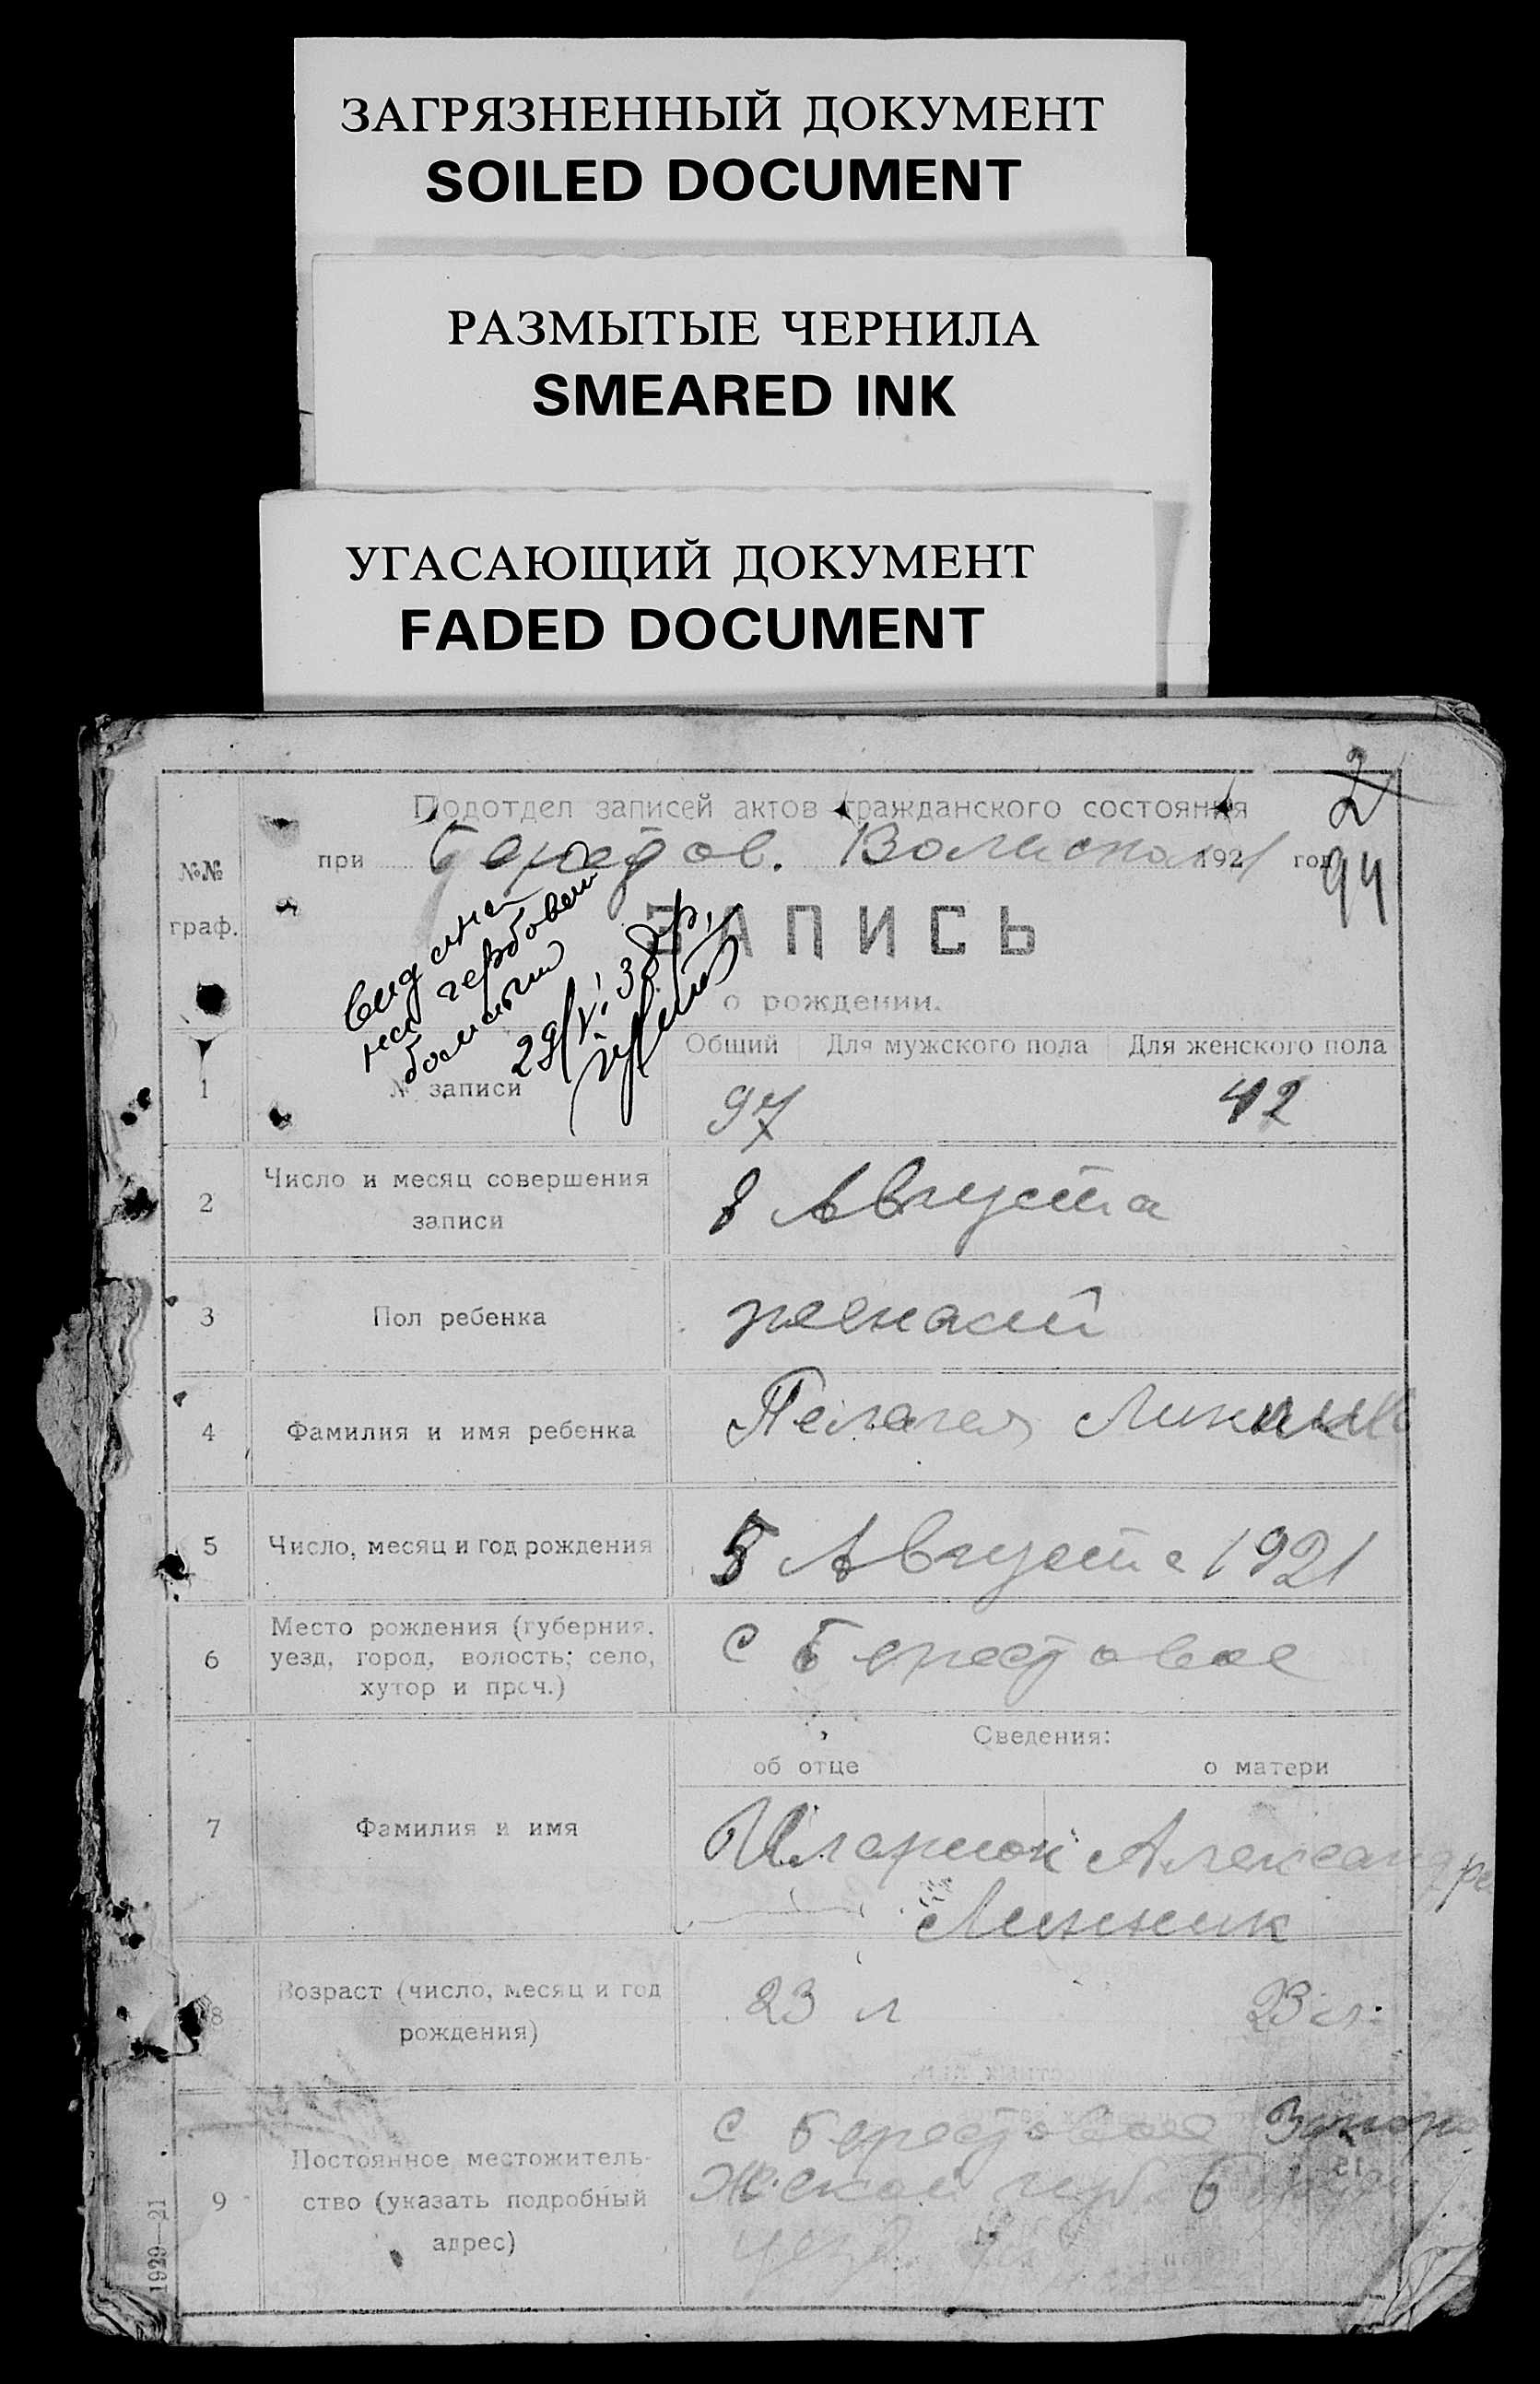 ЗАГРЯЗНЕННЫЙ ДОКУМЕНТ
SOILED DOCUMENT
РАЗМЫТЫЕ ЧЕРНИЛА
SMEARED INK
УГАСАЮЩИЙ ДОКУМЕНТ
FADED DOCUMENT
2
94
Подотдел записей актов гражданского состояния
при Берестов. 1921 год
№№ граф.
ЗАПИСЬ
о рождении.
Общий Для мужского пола Для женского пола
1 № записи 97 42
2 Число и месяц совершения
записи
8 Августа
3 Пол ребенка женский
4 Фамилия и имя ребенка Пелагея Линник
5 Число, месяц и год рождения 5 Августа 1921
6 Место рождения (губерния,
уезд, город, волость; село,
хутор и проч.)
с Берестовое
Сведения:
об отце о матери
7 Фамилия и имя Иларион Александра
Линник
8 Возраст (число, месяц и год
рождения)
23 л 23 л.
9 Постоянное местожитель-
ство (указать подробный
адрес)
с Берестовое Запоро
жской губ.
1929—21